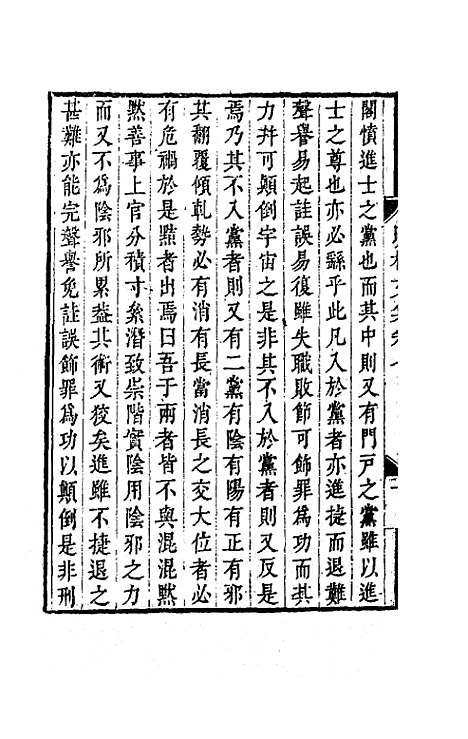 閣憤進士之黨也而其中則又有門戶之黨雖以進
士之尊也亦必繇乎此凡入於黨者亦進捷而退難
聲譽易起詿誤易復雖失職敗節可飾罪為功而其
力幷可顛倒宇宙之是非其不入於黨者則又反是
焉乃其不入黨者則又有二黨有陰有陽有正有邪
其翻覆傾軋勢必有消有長當消長之交大位者必
有危禍於是黠者出焉曰吾于兩者皆不與混混默
默善事上官分積寸絫潛致崇階實陰用陰邪之力
而又不為陰邪所累葢其術又狡矣進雖不捷退之
甚難亦能完聲譽免詿誤飾罪為功以顛倒是非刑